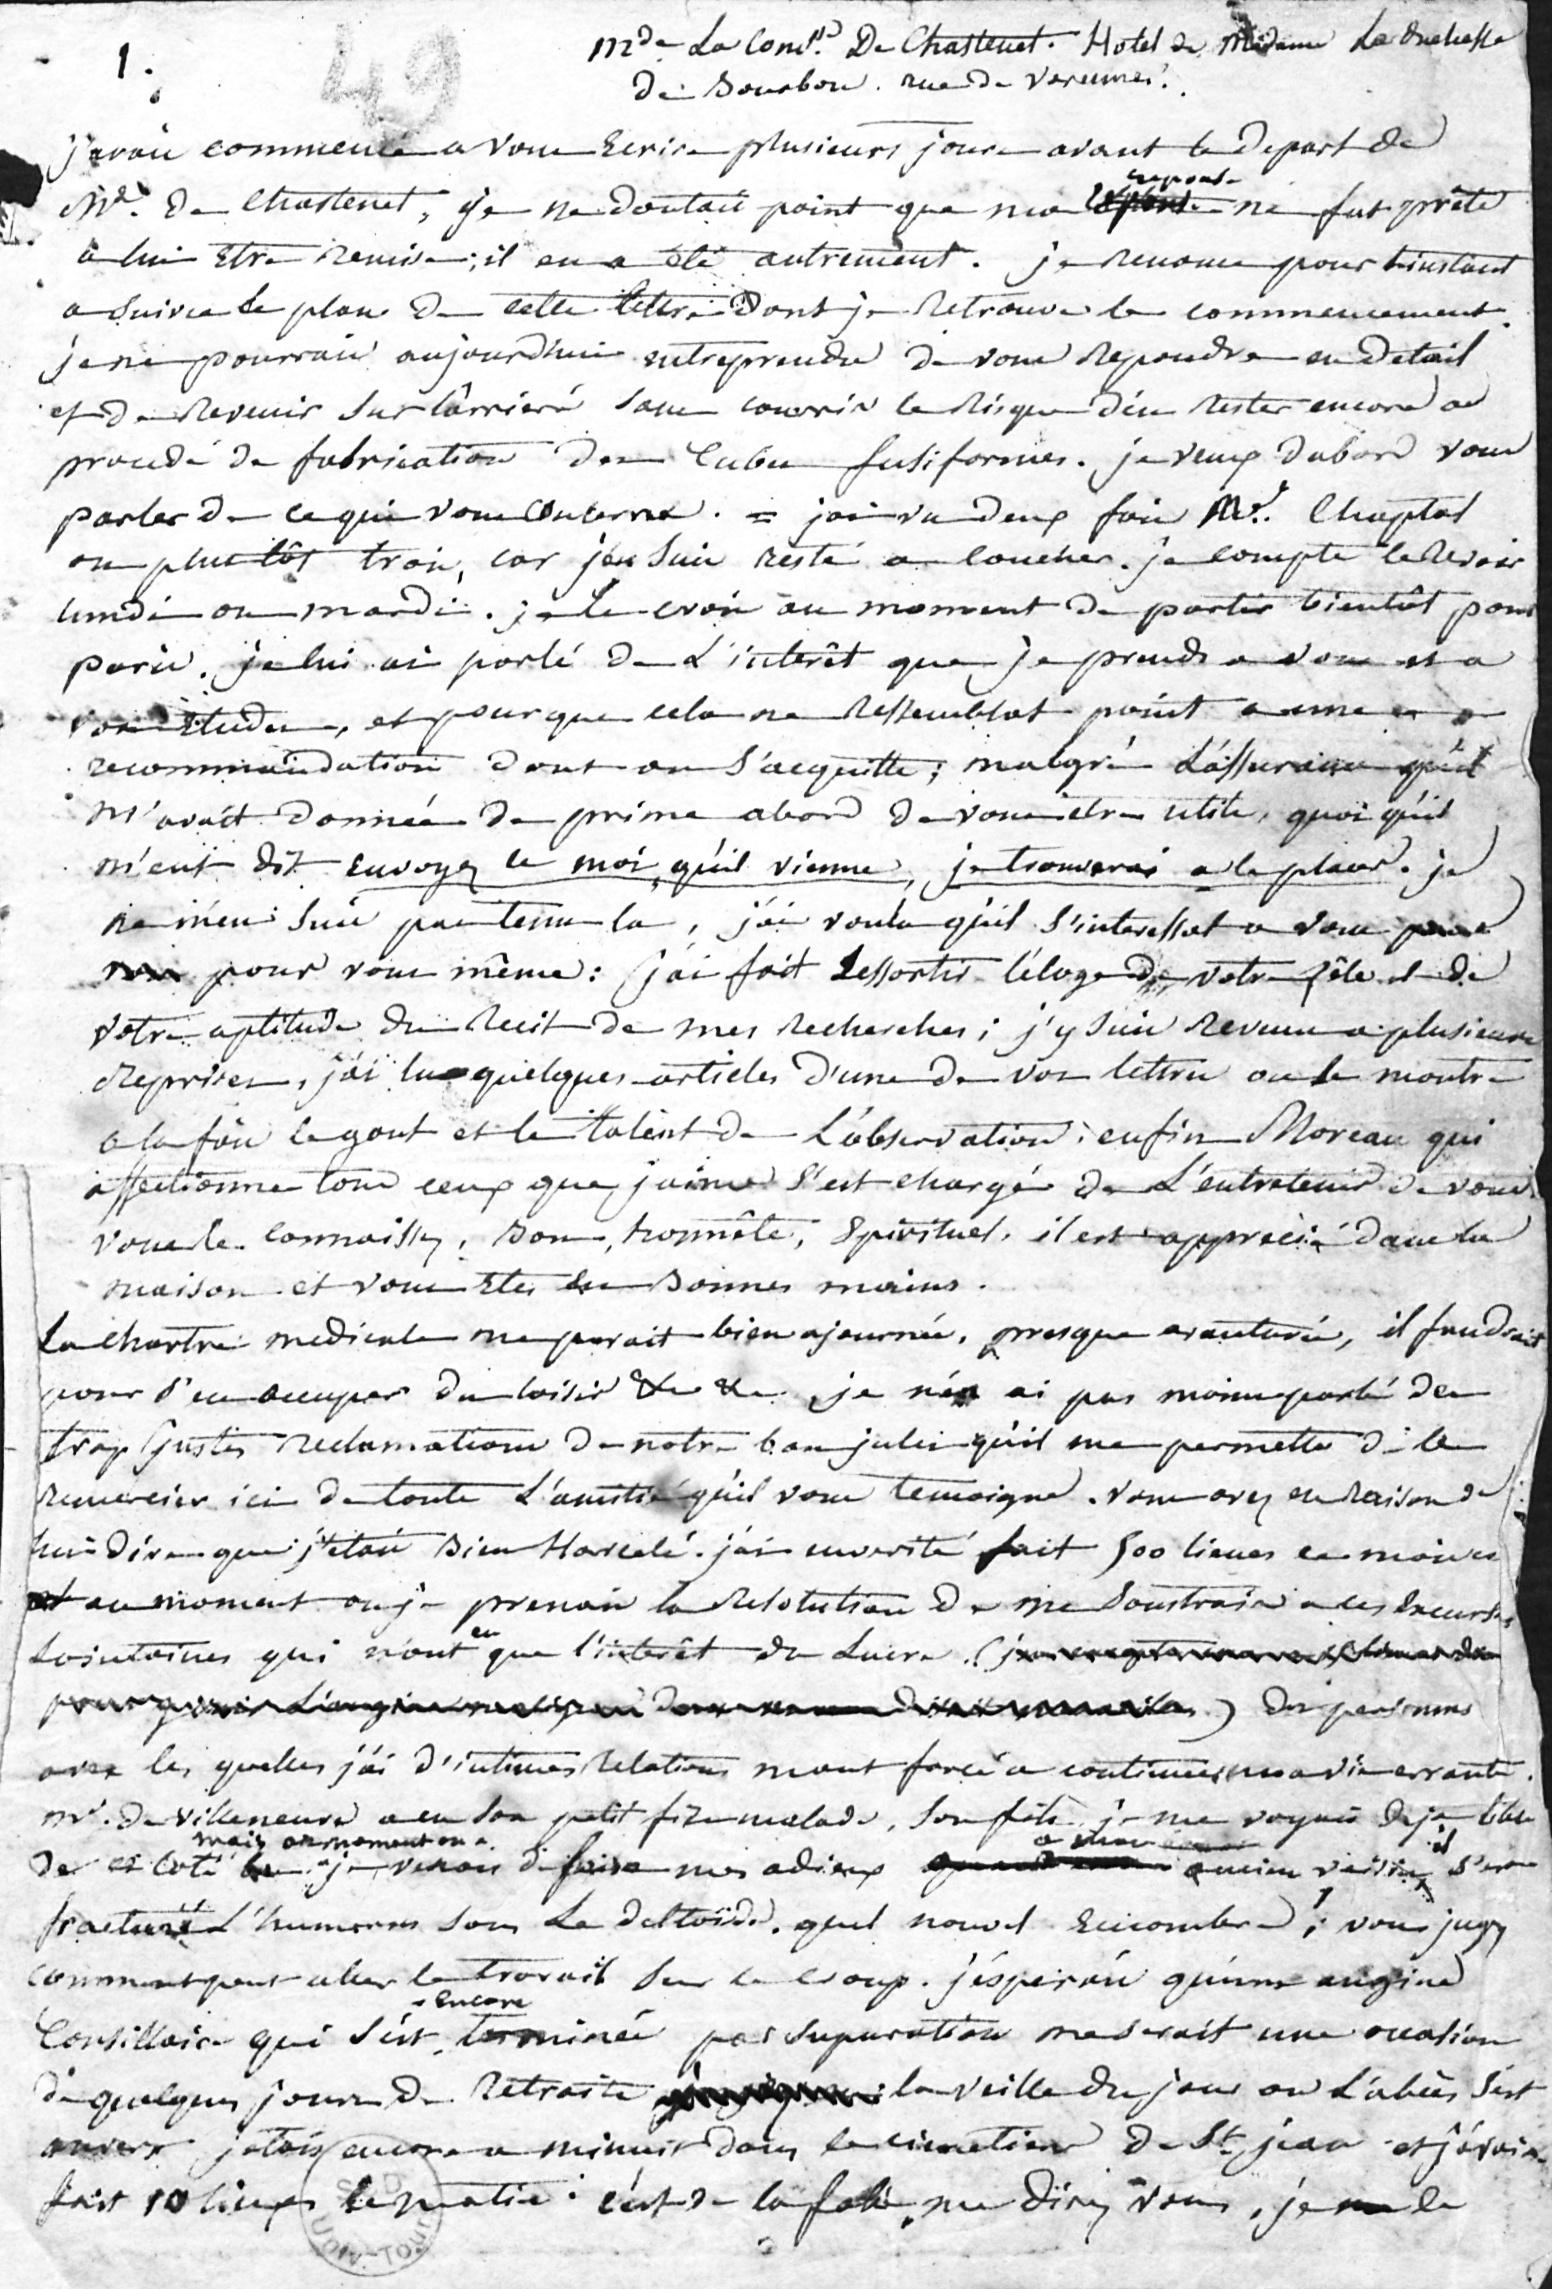 49
1.
Mde La Comtse De Chastenet. Hotel de Madame La duchesse
de Bourbon. rue de Varennes.
j'avais commencé a vous Ecrire plusieurs jours avant le depart de
Md. De Chastenet, je ne doutais point que ma reponse ne fut prête
a lui Etre remise; il en a été autrement. je renonce pour l'instant
a suivre le plan de cette lettre dont je retrouve le commencement.
je ne pourrais aujourdhui entreprendre de vous repondre en detail
et de revenir sur l'arrieré sans courrir le risque d'en rester encore au
procédé de fabrication des tubes fusiformes. je veux dabord vous
parler de ce qui vous concerne. = j'ai vu deux fois Mr. Chaptal
ou plutôt trois, car j'en suis resté a coucher. je compte le revoir
lundi ou mardi. je le crois au moment de partir bientôt pour
paris. je lui ai parlé de L'interêt que je prends a vous et a
vos Etudes, et pour que cela ne ressemblat point a une
recommandation dont on s'acquitte; malgré L'assurance qu'il
m'avait donnée de prime abord de vous etre utile, quoi qu'il
m'eut dit envoyez le moi, qu'il vienne, je trouverai a le placer. je
ne m'en suis pas tenu la, j'ai voulu qu'il s'interessat a vous
pour vous même: j'ai fait ressortir l'éloge de votre zêle et de
votre aptitude du recit de mes recherches; j'y suis revenu a plusieurs
reprises, j'ai lu quelques articles d'une de vos lettres ou se montre
a la fois le gout et le talent de L'observation; enfin Moreau qui
affectionne tous ceux que j'aime s'est chargé de L'entretenir de vous.
vous le connaissez, Bon, honnête, Spirituel, il est apprécié dans la
maison et vous Etes en Bonnes mains.
La chartre medicale me parait bien ajournée, presque aventurée, il faudrait
pour s'en occuper du loisir &c &c. je n'en ai pas moins parlé des
trop justes reclamations de notre bon jules qu'il me permette de le
remercier ici de toute L'amitié qu'il vous temoigne. vous avez eu raison de
lui dire que j'étais Bien Harcelé. j'ai en verité fait 500 lieues ce mois ci
au moment ou je prenais la resolution de me soustraire a ces excursions
Lointaines qui n'ont eu que l'interêt du Lucre. des personnes
avec les quelles j'ai d'intimes relations m'ont forcé a continuer ma vie errante.
mr. de villeneuve a eu son petit fils malade, son fils. je me voyais deja libre
de ce coté mais au moment ou je venais de faire mes adieux a ancien voisin il s'est
fracturé L'humerus sous Le deltoïde. quel nouvel Encombre! vous jugez
comment peut aller le travail sur ce coup. j'esperais qu'une angine
tonsillaire qui s'est encore terminée par supuration me serait une occasion
de quelques jours de retraite la veille du jour ou L'abcès s'est
ouvert j'etais encore a minuit dans le cimetiere de St. jean et j'avais
fait 10 lieues le matin: c'est de la folie, me direz vous, je le